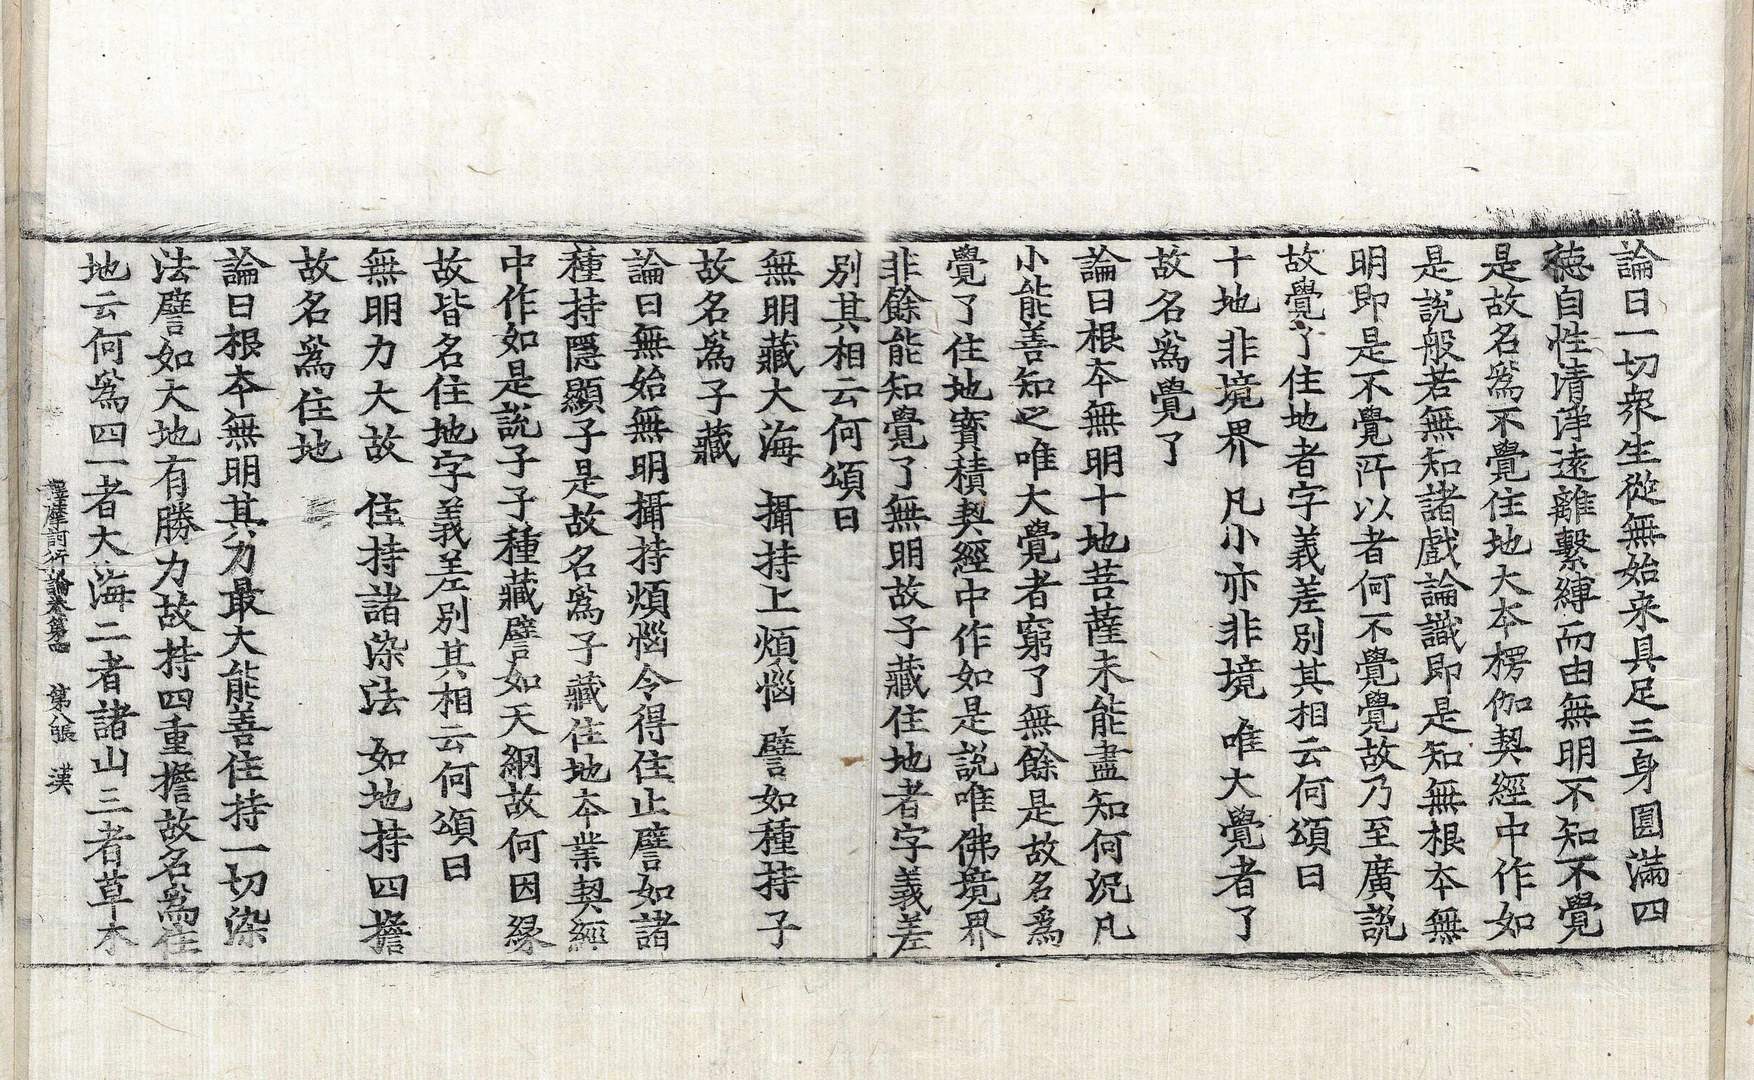 論曰一切衆生從無始来具足三身圓滿四
德自性清淨遠離繫縛而由無明不知不覺
是故名爲不覺住地大本楞伽契經中作如
是說般若無知諸戱論識即是知無根本無
明即是不覺所以者何不覺覺故乃至廣說
故覺了住地者字義差別其相云何頌曰
十地非境界 凡小亦非境 唯大覺者了
故名爲覺了
論曰根本無明十地菩薩未能盡知何況凡
小能善知之唯大覺者窮了無餘是故名爲
覺了住地寶積契經中作如是說唯佛境界
非餘能知覺了無明故子藏住地者字義差
別其相云何頌曰
無明藏大海 攝持上煩惱 譬如種持子
故名爲子藏
論曰無始無明攝持煩惱令得住止譬如諸
種持隱顯子是故名爲子藏住地本業契經
中作如是說子子種藏譬如天網故何因緣
故皆名住地字義差別其相云何頌曰
無明力大故 住持諸染法 如地持四擔
故名爲住地
論曰根本無明其力最大能善住持一切染
法譬如大地有勝力故持四重擔故名爲住
地云何爲四一者大海二者諸山三者草木
釋摩訶衍論卷第 第八張 漢